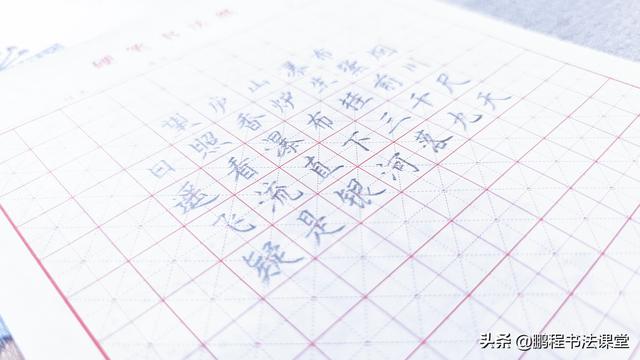 望庐山瀑布
日照香炉生紫烟
遥看瀑布挂前川
飞流直下三千尺
疑是银河落九天
头条 @鹏程书法课堂